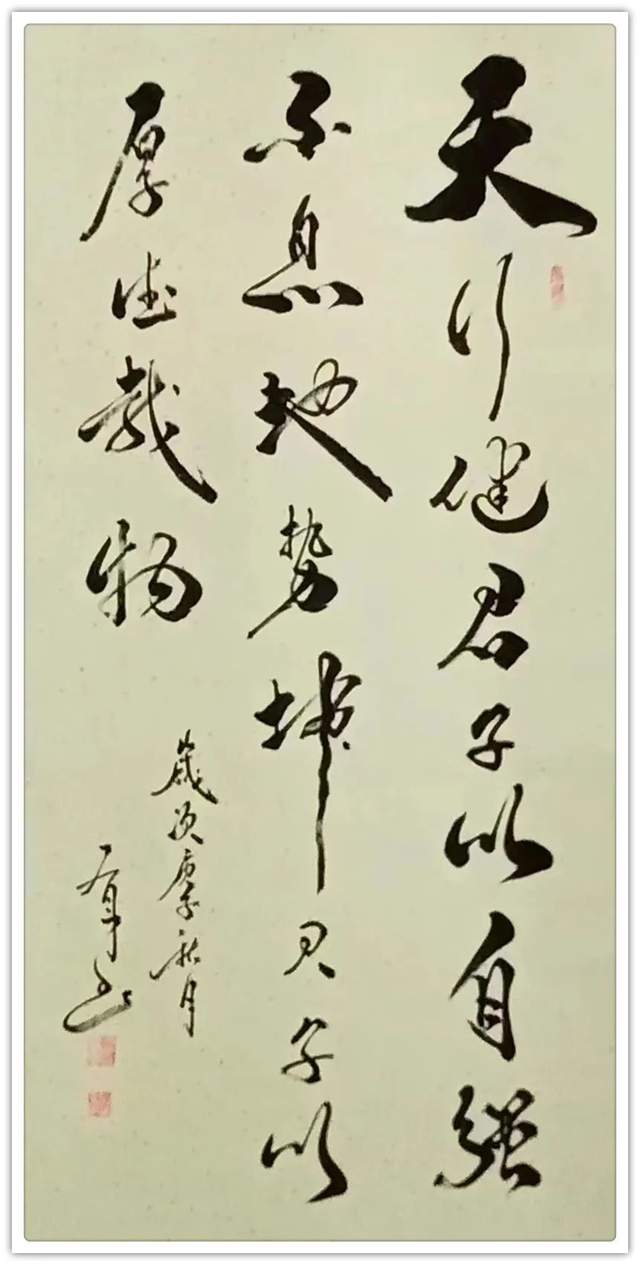 天行健君子以自强
不息地势坤君子以
厚德载物
岁次庚子秋月